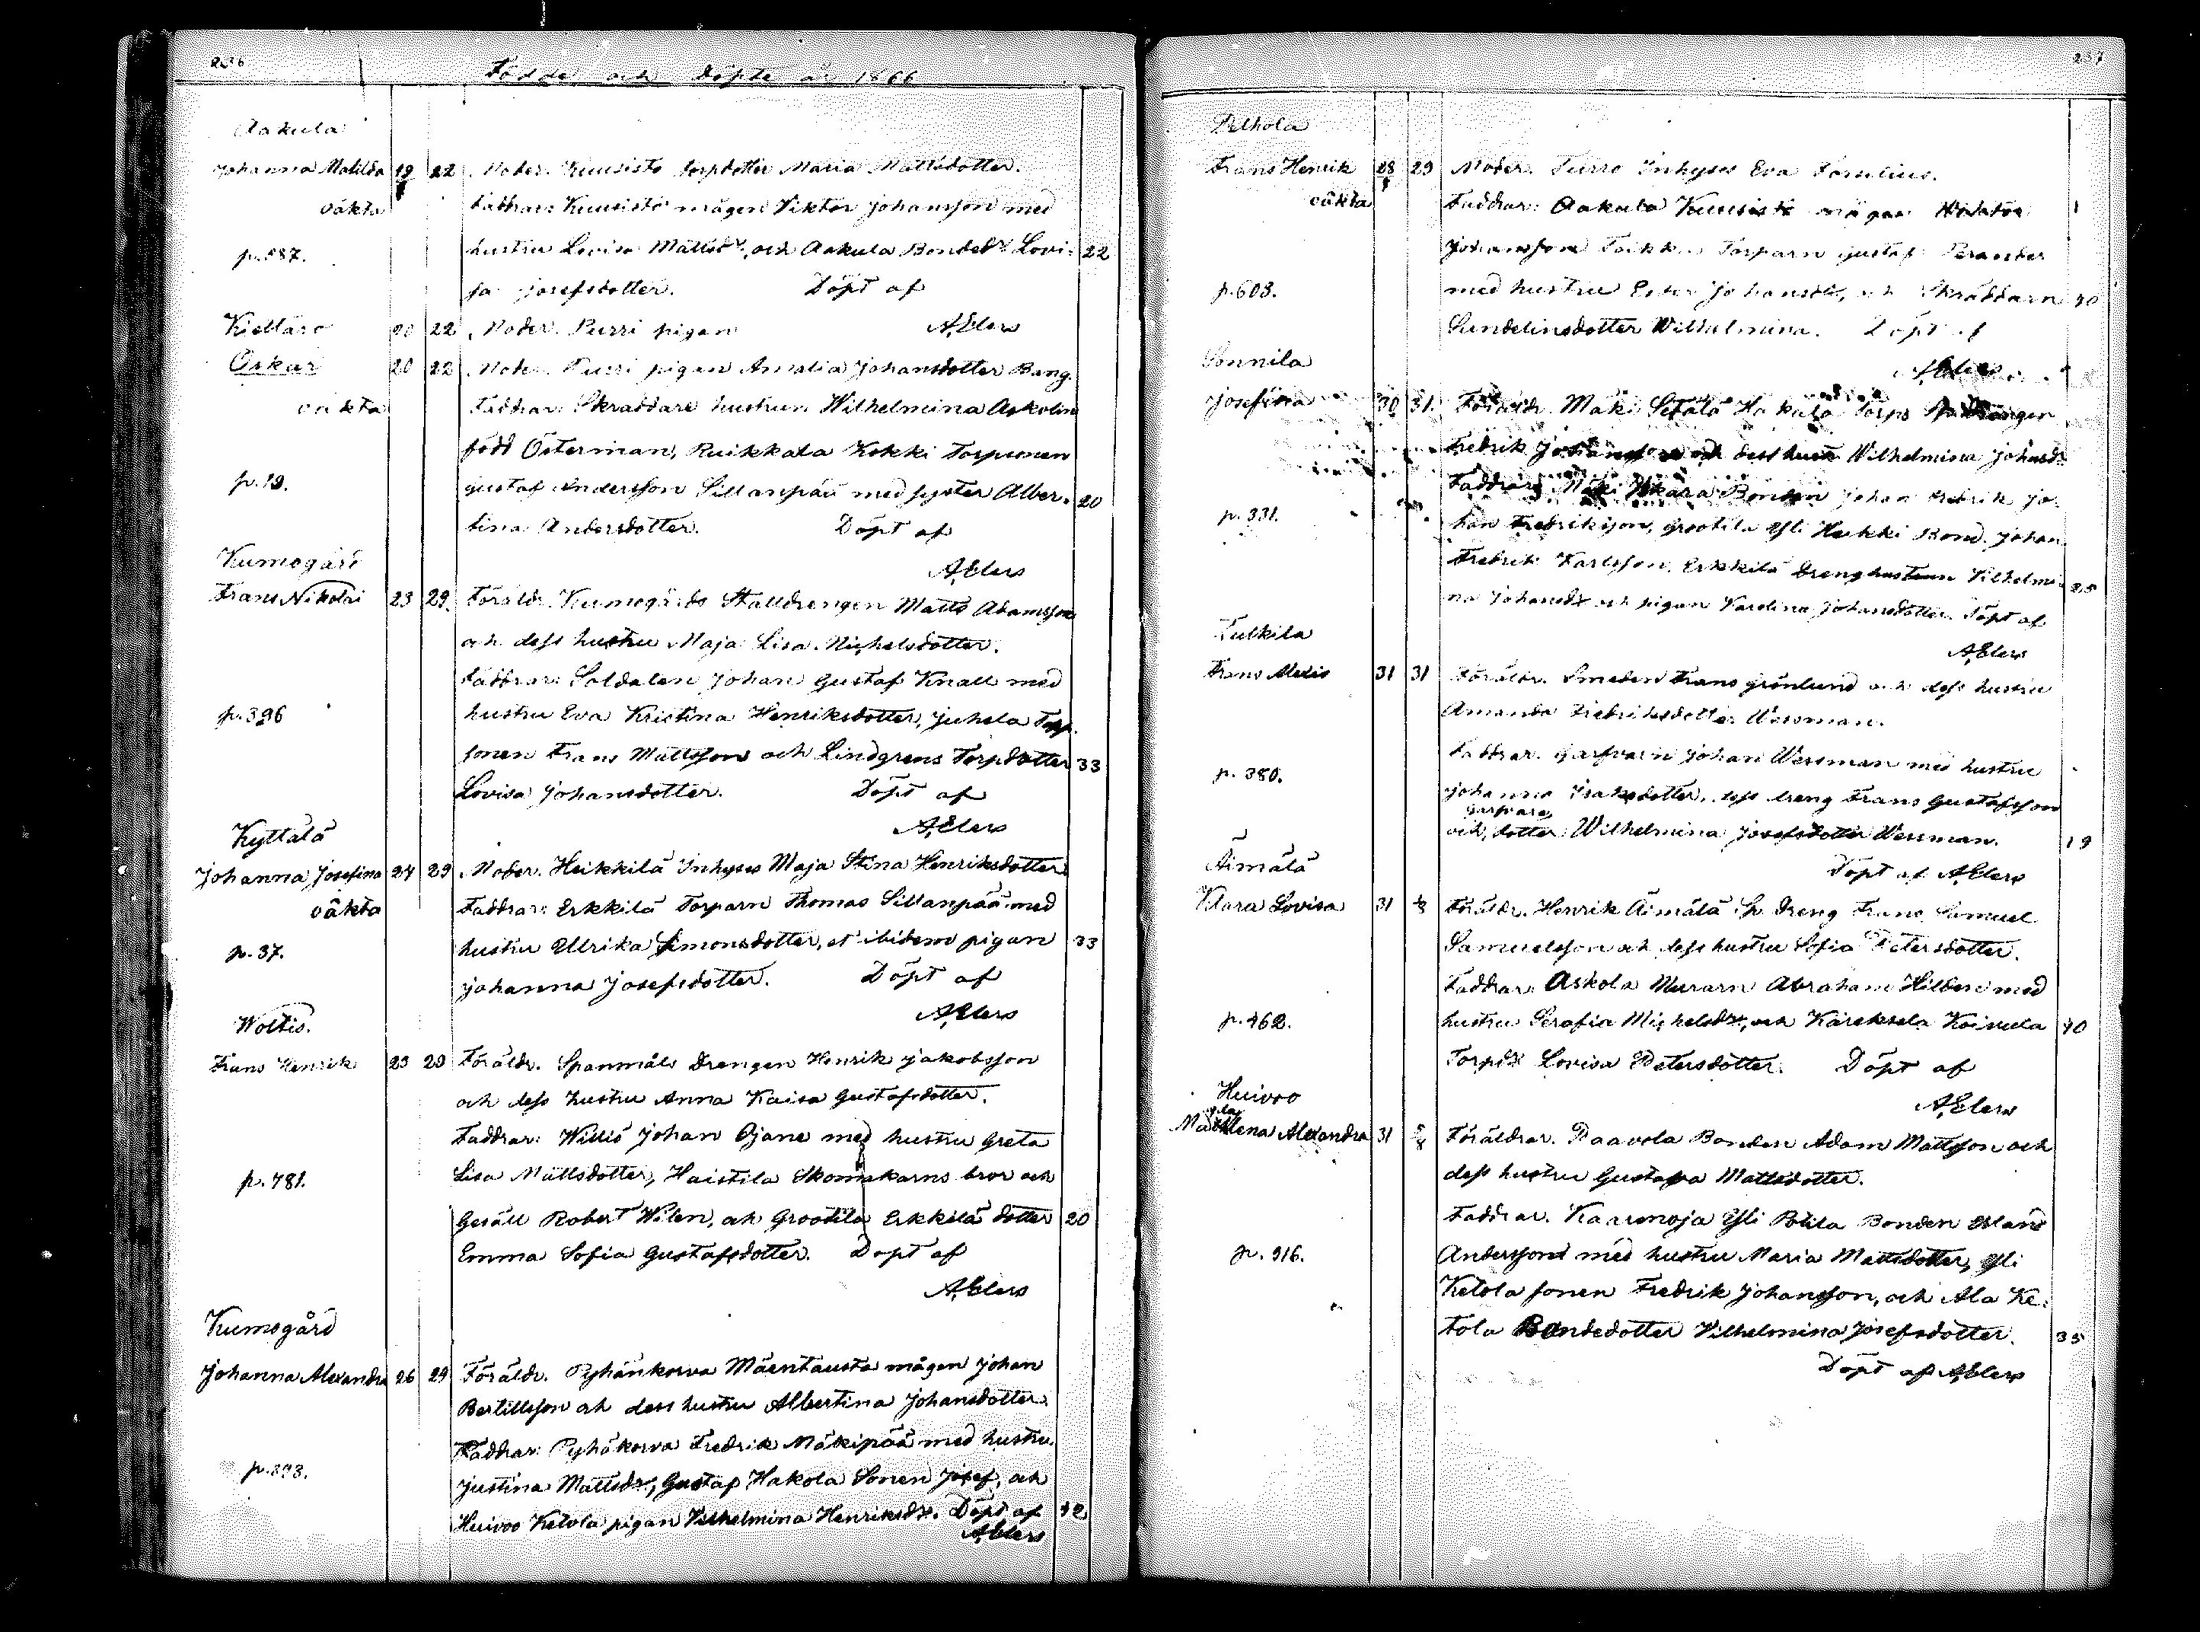 236
Födde och Döpte år 1866
Aakula
Johanna Matilda 19 22 Moder. Kuusisto torpdotter Maria Mattsdotter.
oäkta Faddrar: Kuusisto mågen Viktor Johansson med
p. 587. hustru Lovisa Mattsdr, och Aakula Bonded. Lovi- 22
sa Josefsdotter. Döpt af
AElers
Kieltäro 20 22 Moder. Purri pigan
Oskar 20 22 Moder. Purri pigan Amalia Johansdotter Bang.
oäkta Faddrar: Skraddare hustrun Wilhelmina Askolin
född Österman, Ruikkala Kokki Torpsonen
p. 19. Gustaf Andersson Sillanpää med syster Alber- 20
tina Andersdotter. Döpt af
AElers
Kumogård
Frans Nikolai 23 29 Föräldr. Kumogårds Stalldrengen Matts Adamsson
och dess hustru Maja Lisa Michelsdotter.
Faddrar: Soldaten Johan Gustaf Knall med
p. 396 hustru Eva Kristina Henriksdotter, Juhela Torp-
sonen Frans Mattsson och Lindgrens Torpdotter 33
Lovisa Johansdotter. Döpt af
AElers
Kyttälä
Johanna Josefina 24 29 Moder. Heikkilä Inhyses Maja Stina Henriksdotter
oäkta Faddrar: Erkkilä Torparn Thomas Sillanpää med
p. 37. hustru Ulrika Simonsdotter, et ibidem pigan 33
Johanna Josefsdotter. Döpt af
AElers
Woitis.
Frans Henrik 23 29 Föräldr. Spanmåls Drengen Henrik Jakobsson
och dess hustru Anna Kaisa Gustafsdotter.
Faddrar: Johan Ojane med hustru Greta
p. 781. Lisa Mattsdotter, Haistila Skomakarns bror och
Gesäll Robert Wilen, och Grootila Erkkilä dotter 20
Emma Sofia Gustafsdotter. Döpt af
AElers
Kumogård
Johanna Alexandra 26 29 Föräldr. Pyhänkorva Mäentausta mågen Johan
Bertillsson och dess hustru Albertina Johansdotter.
Faddrar: Pyhäkorva Fredrik Mäkipää med hustru
p. 393. Justina Mattsdr, Gustaf Hakola Sonen Josef, och
Huivoo Ketola pigan Vilhelmina Henriksdr. Döpt af
AElers
237
Pelhola
Frans Henrik 28 29 Moder. Turro Inhyses Eva Fomelius.
oäkta Faddrar: Aakula Kuusisto mågen Viktor
Johansson Torparn Gustaf
p. 603. med hustru Ester Johansdr, och Skräddarn 40
Sundelinsdotter Wilhelmina. Döpt af
AElers
Sonnila
Josefina 30 31 Föräldr. Mäki Setälä Torps
Fredrik och dess hustru Wilhelmina Johansdr
Faddrar: Mäki Bonden Johan Fredrik Jo-
p. 331. han Fredriksson, Grootila Yli Heikki Bond. Johan
Fredrik Karlsson, Erkkilä Drenghustrun Vilhelmi-
na Johansdr och pigan Karolina Johansdotter. Döpt af
AElers
Tulkila
Frans Alexis 31 31 Föräldr. Smeden Frans Grönlund och dess hustru
Amanda Fredriksdotter Wessman.
Faddrar. Garfvarn Johan Wessman med hustru
p. 380. Johanna Isaksdotter, dess dreng Frans Gustafsson
garfvare
och dotter Wilhelmina Josefsdotter Wessman. 19
Döpt af AElers
Äimälä
Klara Lovisa 31 Föräldr. Henrik Äimälä Sp. Dreng Frans Samuel
Samuelsson och dess hustru Sofia Petersdotter.
Faddrar: Askola Murarn Abraham Hilden med
p. 462. hustru Serafia Michelsdr, och Käreksela Koivula 40
Torpdr Lovisa Petersdotter. Döpt af
AElers
Huivoo
Magdalena Alexandra 31 Föräldrar. Paavola Bonden Adam Mattsson och
dess hustru Gustava Mattsdotter.
Faddrar. Kaurnoja Yli Pötila Bonden
p. 916. Andersson med hustru Maria Mattsdotter, Yli
Ketola sonen Fredrik Johansson, och Ala Ke-
tola Bondedotter Vilhelmina Josefsdotter. 35
Döpt af AElers